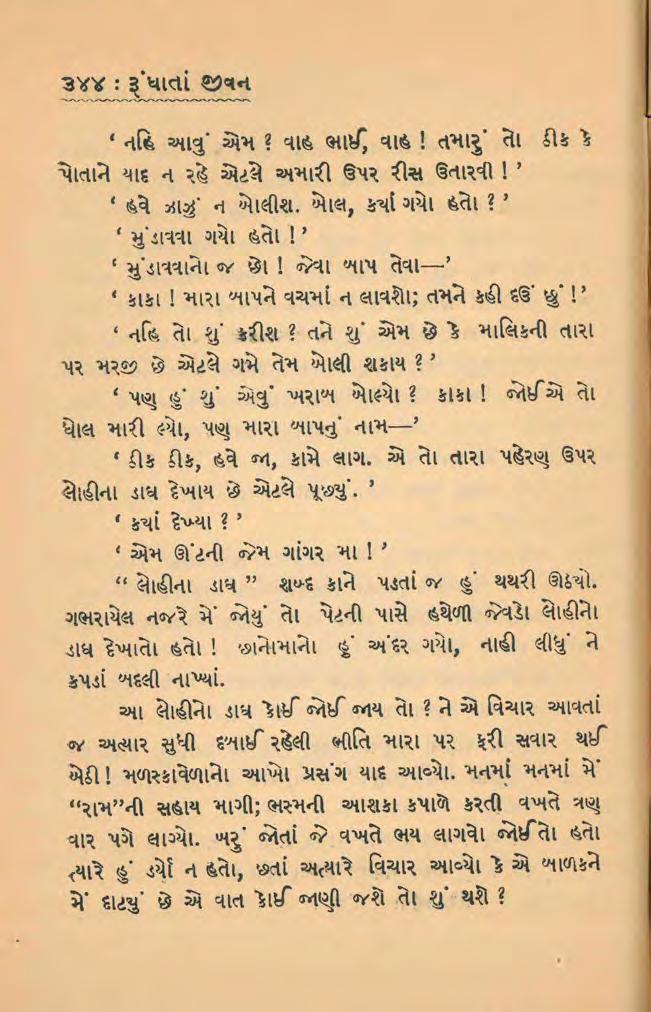 ૩૪૪ : રૂંધાતાં જીવન
‘ નહિ આવું એમ ? વાહ ભાઈ, વાહ ! તમારું તો ઠીક કે
પોતાને યાદ ન રહે એટલે અમારી ઉપર રીસ ઉતારવી ! ’
‘ હવે ઝાઝું ન બોલીશ. બોલ, કયાં ગયો હતો ? ’
‘ મુંડાવવા ગયો હતો ! ’
‘ મુંડાવવાનો જ છો ! જેવા બાપ તેવા—’
‘ કાકા ! મારા બાપને વચમાં ન લાવશો; તમને કહી દઉં છું !’
‘ નહિ તો શું કરીશ ? તને શું એમ છે કે માલિકની તારા
પર મરજી છે એટલે ગમે તેમ બોલી શકાય ? ’
‘ પણ હું શું એવું ખરાબ બોલ્યો ? કાકા ! જોઈએ તો
ધોલ મારી લ્યો, પણ મારા બાપનું નામ—’
‘ ઠીક ઠીક, હવે જા, કામે લાગ. એ તો તારા પહેરણ ઉપર
લોહીના ડાઘ દેખાય છે એટલે પૂછ્યું. ’
‘ કયાં દેખ્યા ? ’
‘ એમ ઊંટની જેમ ગાંગર મા ! ’
“ લોહીના ડાઘ ” શબ્દ કાને પડતાં જ હું થથરી ઊઠયો.
ગભરાયેલ નજરે મેં જોયું તો પેટની પાસે હથેળી જેવડો લોહીનો
ડાઘ દેખાતો હતો ! છાનોમાનો હું અંદર ગયો, નાહી લીધું ને
કપડાં બદલી નાખ્યાં.
આ લોહીનો ડાઘ કોઈ જોઈ જાય તો ? ને એ વિચાર આવતાં
જ અત્યાર સુધી દબાઈ રહેલી ભીતિ મારા પર ફરી સવાર થઈ
બેઠી ! મળસ્કાવેળાનો આખો પ્રસંગ યાદ આવ્યો. મનમાં મનમાં મેં
“રામ”ની સહાય માગી; ભસ્મની આશકા કપાળે કરતી વખતે ત્રણ
વાર પગે લાગ્યો. ખરું જોતાં જે વખતે ભય લાગવો જોઈતો હતો
ત્યારે હું ડર્યો ન હતો, છતાં અત્યારે વિચાર આવ્યો કે એ બાળકને
મેં દાટયું છે એ વાત કોઈ જાણી જશે તો શું થશે ?